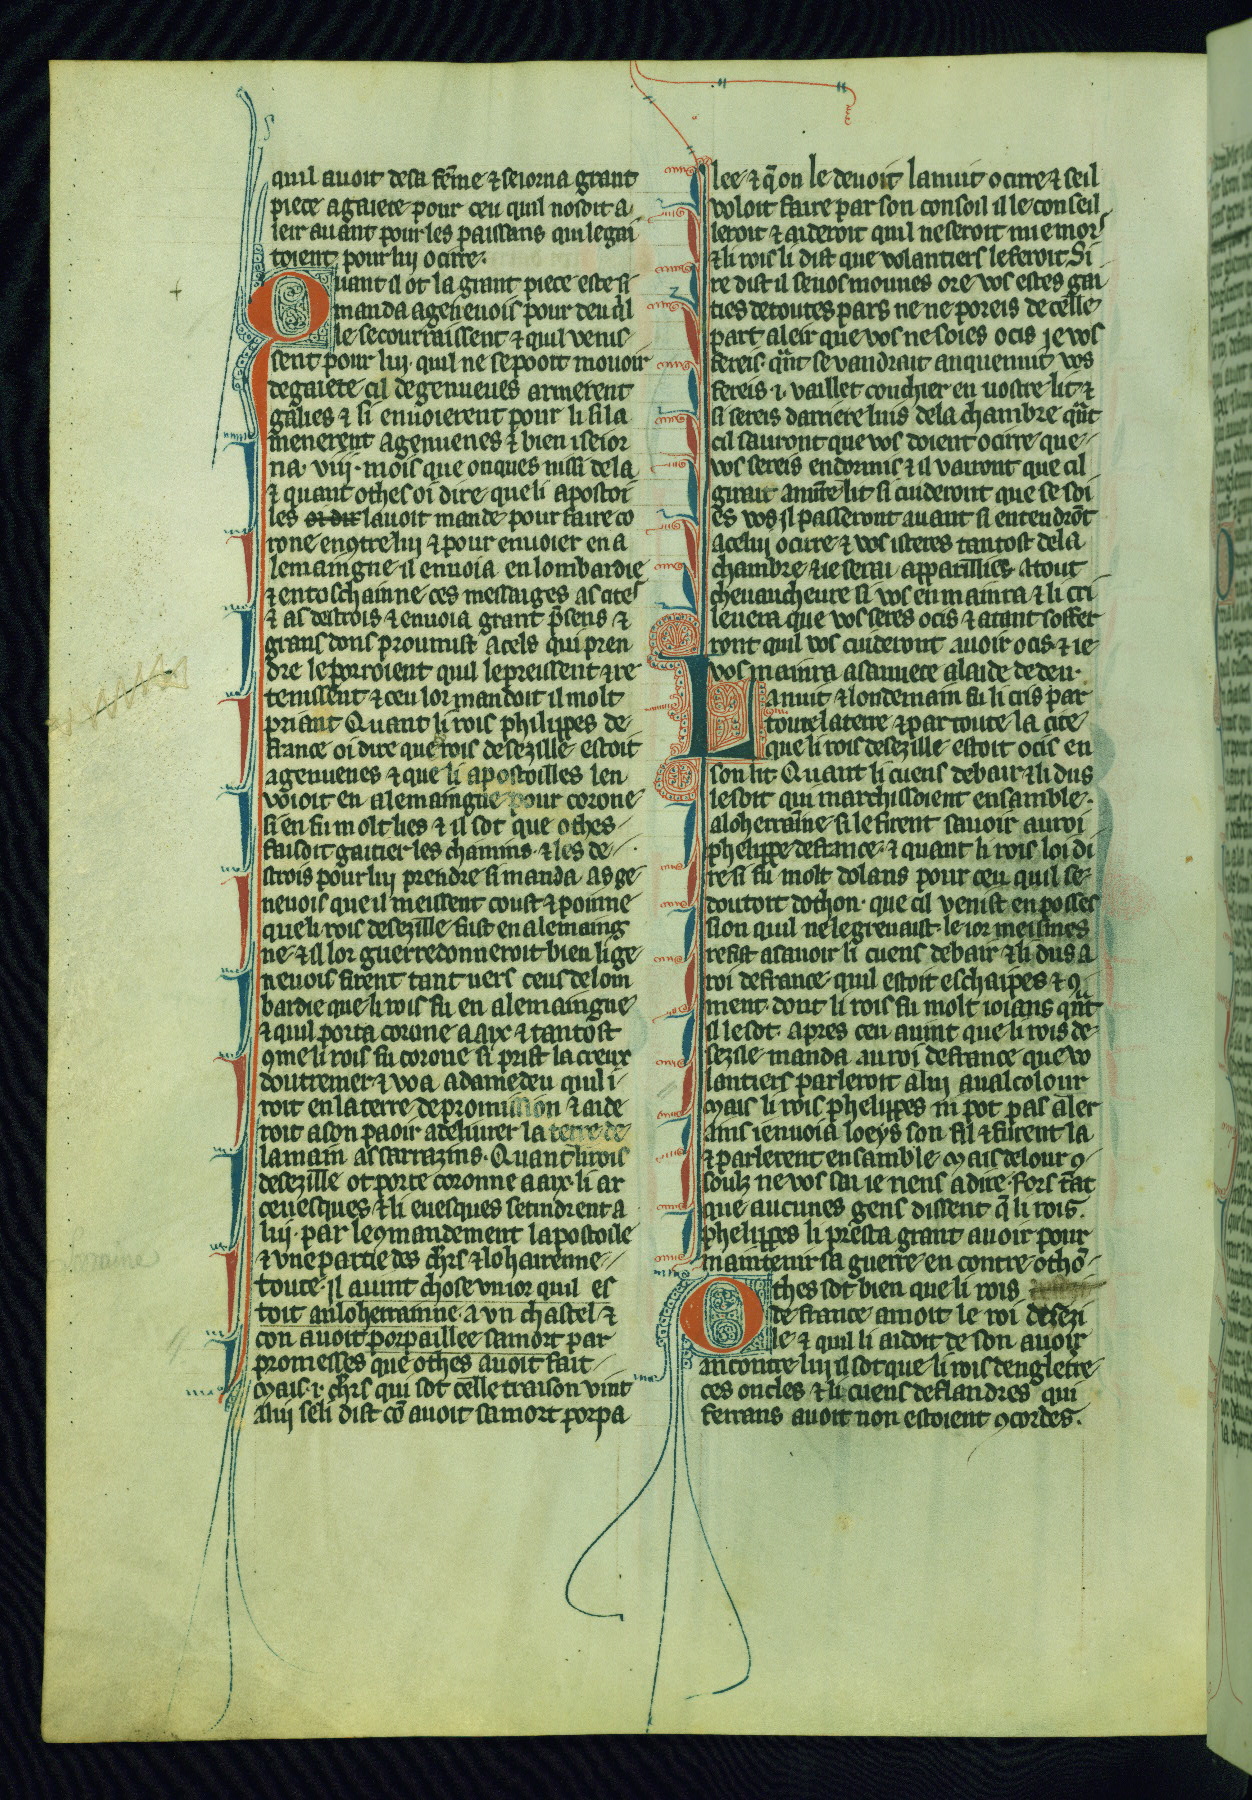 quil auoit de sa fēme ⁊ seiorna grant
piece a gaiete pour ceu quil nosoit a
leir auant pour les paissans qui le gai
toient pour lui ocirre.
Quant il ot la grant piece este si
manda a geneuois pour deu qͥl
le secourraissent ⁊ quil venis
sent pour lui. quil ne se pooit mouoir
de gaiete. cil de genueues armerent
galies ⁊ si enuoierent pour li si la
menerent a genuenes ⁊ bien i seior
na. viij. mois que onques nissi de la
⁊ quant othes oi dire que li apostoi
les oi dir lauoit mande pour faire co
rone en ꝯtre lui ⁊ pour enuoier en a
lemaingne il enuoia en lombardie
⁊ en toschainne ces messaiges as cites
⁊ as destrois ⁊ enuoia grant p̄sens ⁊
grans dons proumist a cels qui pren
dre le porroient quil le preissent ⁊ re
tenissent ⁊ ceu lor mandoit il molt
priant Quant li rois philippes de
france oi dire que rois de sezille estoit
a genuenes ⁊ que li apostoilles len
voioit en alemaingne pour corone
si en fu molt lies ⁊ il sot que othes
faisoit gaitier les chamins ⁊ les de
strois pour lui prendre si manda as ge
neuois que il meissent coust ⁊ poinne
que li rois de sezille fust en alemaing
ne ⁊ il lor guerredonneroit bien li ge
neuois firent tant uers ceus de lom
bardie que li rois fu en alemaingne
⁊ quil porta corone a aix ⁊ tantost
ꝯme li rois fu corone si prist la creux
doutremer ⁊ voa a damedeu quil i
roit en la terre de promission ⁊ aide
roit a son paoir a deliurer la terre de
la main as sarrazins. Quant li rois
de sezille ot porte coronne a aix. li ar
ceuesques ⁊ li euesques se tindrent a
lui. par le ꝯmandement lapostoile
⁊ vne partie des ch̄rs ⁊ lohairenne
toute. il auint chose vn ior quil es
toit an loherrainne. a vn chastel ⁊
con auoit porpaillee sa mort par
promesses que othes auoit fait
Mais .i. ch̄rs qui sot celle traison vint
a lui se li dist cō auoit sa mort porpa
lee ⁊ q̄ on le deuoit la nuit ocirre ⁊ se il
voloit faire par son consoil il le conseil
leroit ⁊ aideroit quil ne seroit mie mors
⁊ li rois li dist que volantiers le feroit. Si
re dist il se uos mounes ore vos estes gai
ties de toutes pars ne ne poreis de celle
part aleir que vos ne soies ocis je vos
fereis. qͣnt se vandrait anquennuit vos
fereis .i. vaillet couchier en uostre lit ⁊
si sereis darriere luis de la chambre qͣnt
cil sauront que vos doient ocirre que
vos sereis endormis ⁊ il vairont que cil
girait an vr̄e lit si cuideront que se soi
es vos il passeront auant si entendrōt
a celui ocirre ⁊ vos isteres tantost de la
chambre ⁊ ie serai apparilliés a tout
cheuaucheure si vos en manrra ⁊ li cri
leuera que vos seres ocis ⁊ atant soffer
ront quil vos cuideront auoir ocis ⁊ ie
vos manrra a sauuete a laide de deu.
La nuit ⁊ londemain fu li cris par
toute la terre ⁊ par toute la cite
que li rois de sezille estoit ocis en
son lit Quant li cuens de bair ⁊ li dus
lesoit qui marchissoient ensamble.
a loherrainne. si le firent sauoir au roi
phelippe de france. ⁊ quant li rois loi di
re si fu molt dolans pour ceu quil se
doutoit dothon. que cil venist en posses
sion quil ne le greuaist. le ior meismes
refist a sauoir li cuens de bair ⁊ li dus a
roi de france quil estoit eschaipes ⁊ ꝯ
ment. dont li rois fu molt ioians qͣnt
il le sot. apres ceu auint que li rois de
sezile manda au roi de france que vo
lantiers parleroit a lui a ualcolour
Mais li rois phelippes ni pot pas aler
ains i enuoia loeys son fil ⁊ furent la
⁊ parlerent ensamble Mais de lour ꝯ
soulz ne vos sai ie riens a dire. fors tāt
que aucunes gens dissent q̄ li rois
phelippes li presta grant auoir pour
maintenir sa guerre en contre othō
Othes sot bien que li rois
de france amoit le roi de sezi
le ⁊ quil li aidoit de son auoir
ancontre lui il sot que li rois dengleterre
ces oncles ⁊ li cuens de flandres qui
ferrans auoit non estoient ꝯcordes.